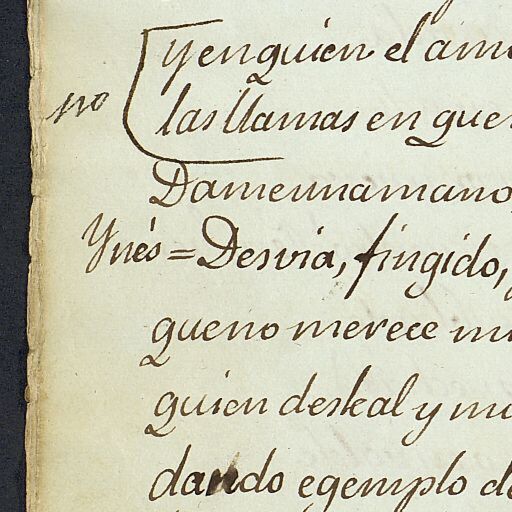 no
y en quien el amo
las llamas en que
Dame una mano,
Ynés = Desvia, fingido,
que no merece mi
quien desleal y
dando egemplo de